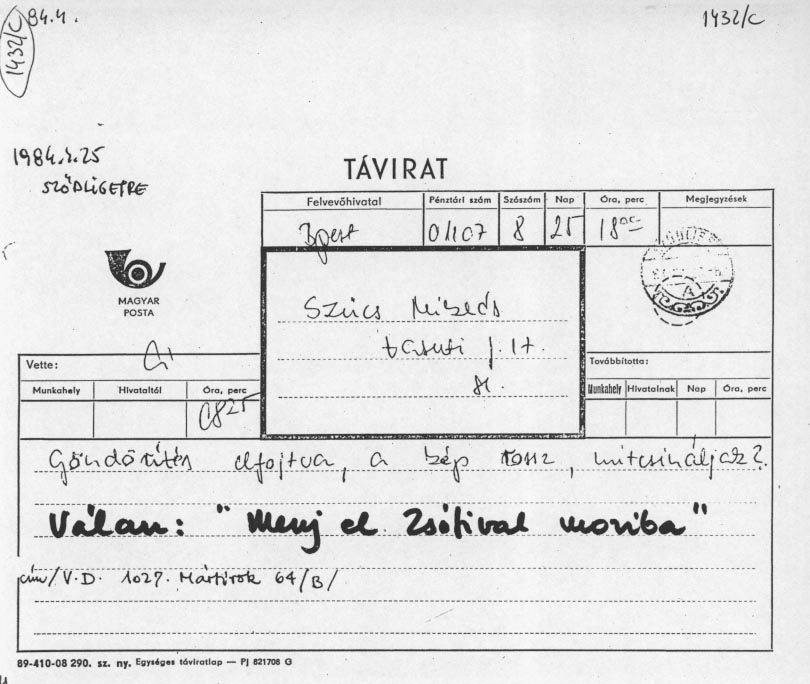 84.4.
1432/C
1432/C
1984.4.25
SZŐDLIGETRE
TÁVIRAT
Felvevőhivatal Pénztári szám Szószám Nap Óra, perc Megjegyzések
Bpest 01107 8 25 18
MAGYAR
POSTA
Szűcs Miklós
f. 17.
Vette:
Továbbította:
Munkahely Hivataltól Óra, perc
Munkahely Hivatalnak Nap Óra, perc
1825
Göndörítés elfojtva, a kép rossz, mitcsináljak?
Válasz: "Menj el Zsófival moziba"
cím/V.D. 1027. Mártírok 64/B/
89-410-08 290. sz. ny. Egységes táviratlap — PJ 821708 G